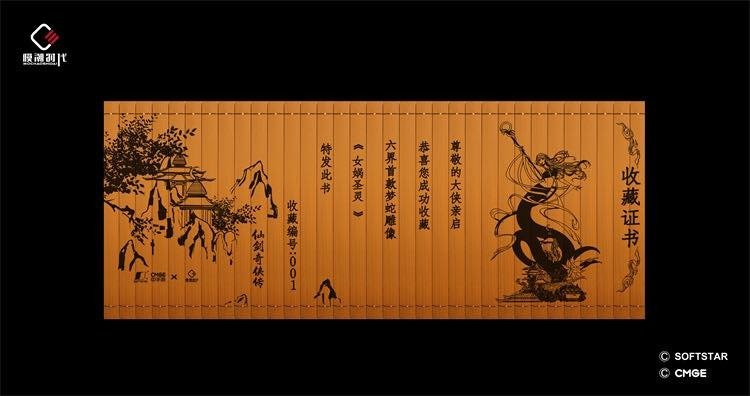 模潮时代
MOCHAOSHIDAI
收藏证书
尊敬的大侠亲启
恭喜您成功收藏
六界首款梦蛇雕像
《女娲圣灵》
特发此书
收藏编号:001
仙剑奇侠传
CMGE
中手游
×
模潮时代
© SOFTSTAR
© CMGE